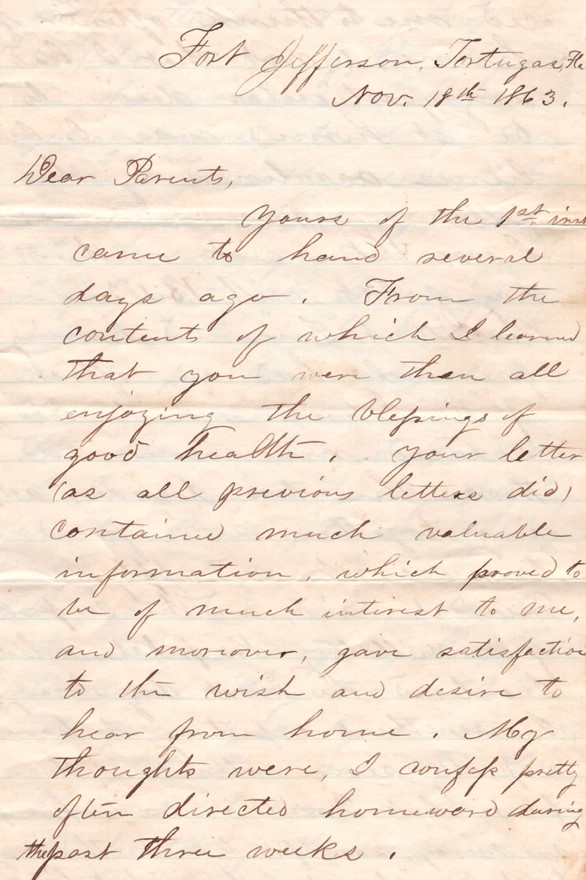 Fort Jefferson, Tortugas, Fla
Nov. 18th 1863.
Dear Parents,
Yours of the 1st inst
came to hand several
days ago. From the
contents of which I learned
that you were then all
enjoying the blessings of
good health. Your letter
(as all previous letters did)
contained much valuable
information, which proved to
be of much interest to me,
and moreover, gave satisfaction
to the wish and desire to
hear from home. My
thoughts were, I confess pretty
often directed homeward during
the past three weeks.